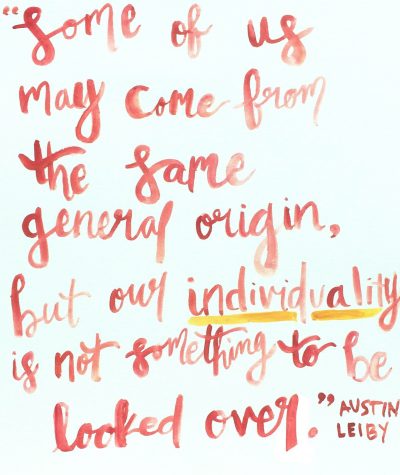 "Some of us
may come from
the same
general origin,
but our individuality
is not something to be
looked over."
AUSTIN
LEIBY